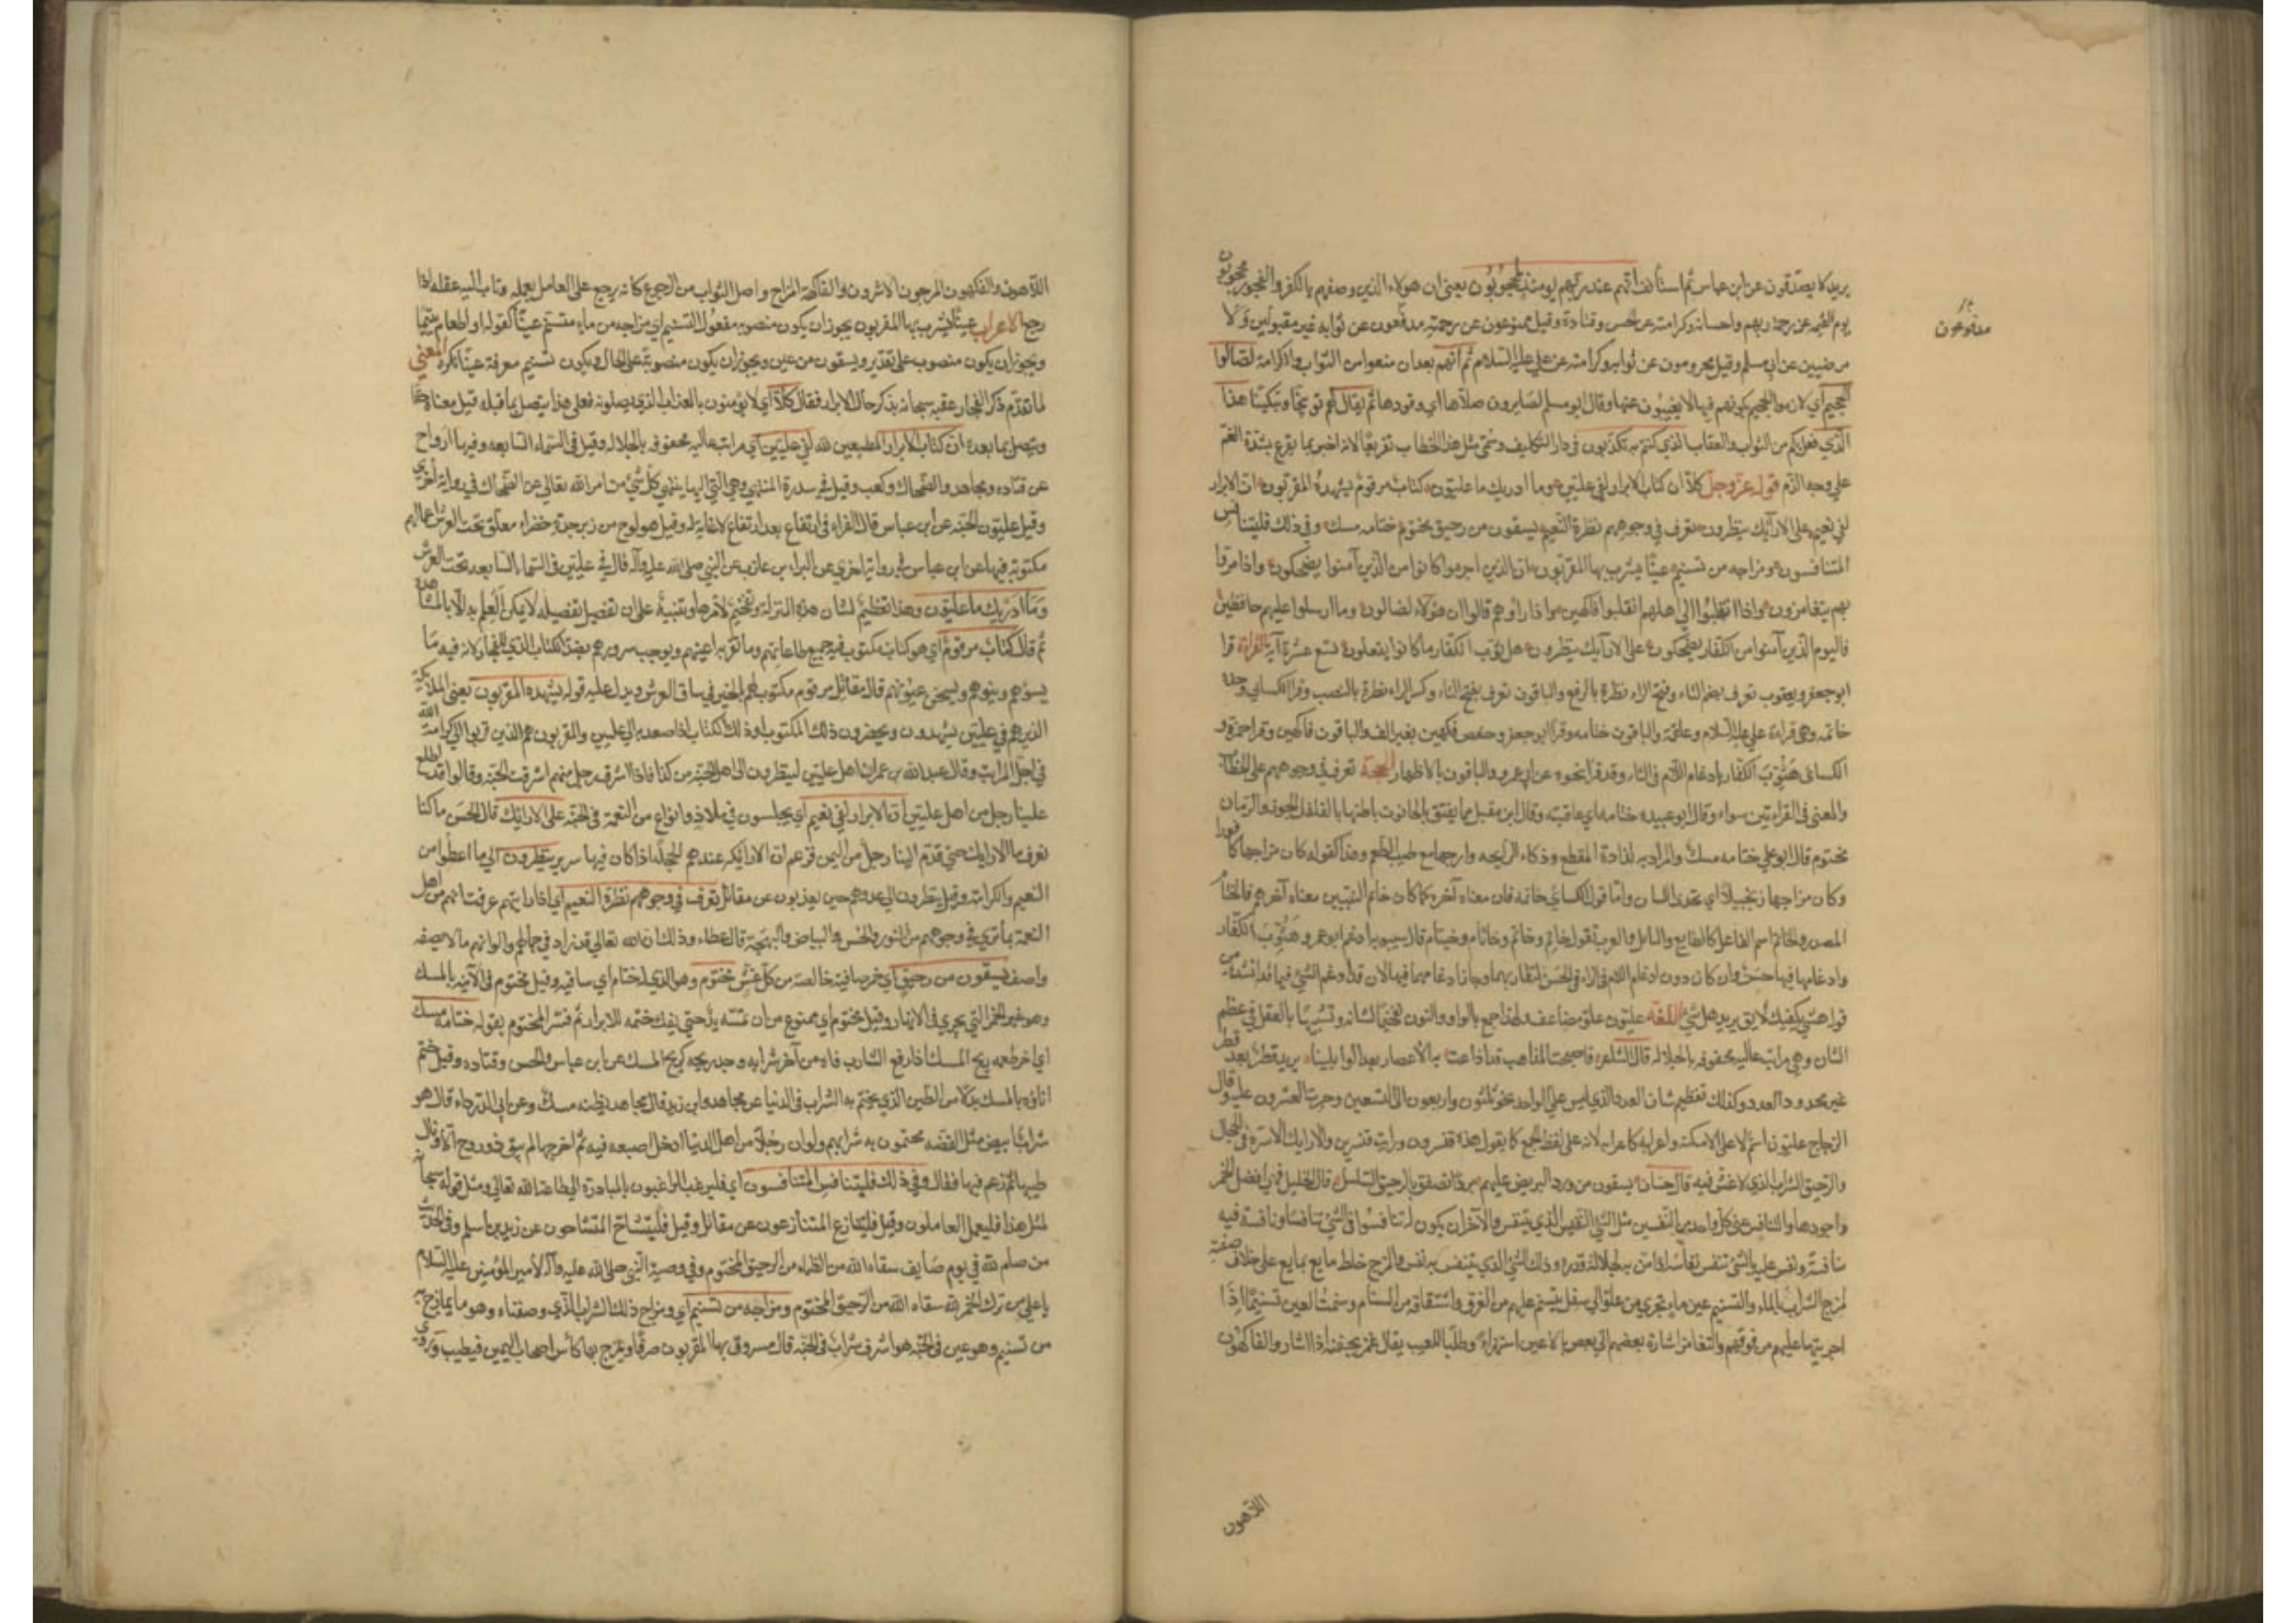 يريد لا يصدقون عن ابن عباس ثم استأنف انهم عند ربهم يومئذ لمحجوبون يعني ان هؤلاء الذين وصفهم بالكفر والفجور محجوبون
يوم القيمة عن رحمة ربهم واحسانه وكرامته عن الحسن وقتادة وقيل ممنوعون عن رحمته مدفعون عن ثوابه غير مقبولين ولا
مدفوعون
مرضيين عن ابي مسلم وقيل محرومون عن ثوابه وكرامته عن علي عليه السلام ثم انهم بعد ان منعوا من الثواب والكرامة لصالوا
الجحيم اي لازموا الجحيم كونهم فيها لا يغيبون عنها وقال ابو مسلم لصايرون صلاها اي وقودها ثم يقال لهم توبيخا وتبكيتا هذا
الذي فعل بكم من الثواب والعقاب الذي كنتم به تكذبون في دار التكليف وسمى مثل هذا الخطاب تقريعا لانه اخبر بما يقرع بشدة الغم
على وجه الذم قوله عز وجل كلا ان كتاب الابرار لفي عليين وما ادريك ما عليون كتاب مرقوم يشهده المقربون ان الابرار
لفي نعيم على الارايك ينظرون تعرف في وجوههم نظرة النعيم يسقون من رحيق مختوم ختامه مسك وفي ذلك فليتنافس
المتنافسون ومزاجه من تسنيم عينا يشرب بها المقربون ان الذين اجرموا كانوا من الذين آمنوا يضحكون واذا مروا
بهم يتغامزون واذا انقلبوا الى اهلهم انقلبوا فاكهين واذا راوهم قالوا ان هؤلاء لضالون وما ارسلوا عليهم حافظين
فاليوم الذين آمنوا من الكفار يضحكون على الارآيك ينظرون هل ثوب الكفار ما كانوا يفعلون تسع عشرة آية القراءة قرا
ابو جعفر ويعقوب تعرف بضم التاء وفتح الراء نظرة بالرفع والباقون تعرف بفتح التاء وكسر الراء نظرة بالنصب وقرا الكسائي وحده
خاتمه وهي قراءة علي عليه السلام وعلقمة والباقون ختامه وقرا ابو جعفر وحفص فكهين بغير الف والباقون فاكهين وقرا حمزة و
الكسائي هثوب الكفار بادغام اللام في الثاء وقد قرا نحوه عن ابي عمرو والباقون بالاظهار الحجة تعرف في وجوههم على الخطاب
والمعنى في القراءتين سواء وقال ابو عبيده ختامه اي عاقبته وقال ابن مقبل مما يفتق بالحانوت باطنها بالفلفل الجون والرمان
مختوم قال ابو علي ختامه مسك والمراد به لذاذة المقطع وذكاء الرايحه وارجها مع طيب الطعم وهذا كقوله كان مزاجها كافورا
وكان مزاجها زنجبيلا اي يحذي اللسان واما قول الكسائي خاتمه فان معناه آخره كما كان خاتم النبيين معناه آخرهم فالختام
المصدر والخاتم اسم الفاعل كالطابع والتابل والعرب تقول خاتم وخاتم وخاتام وخيتام قال سيبويه ادغم ابو عمرو هثوب الكفار
وادغامها فيها حسن وان كان دون ادغام اللام في الراء في الحسن لتقاربهما وجاز ادغامها فيها لانه قد ادغم في الشين فيما انشده من
قوله هشيء بكفيك لايق يريد هل شيء اللغة عليون علو مضاعف ولهذا جمع بالواو والنون تفخيما لشانه وتشبيها بالعقل في عظم
الشان وهي مراتب عاليه محفوفه بالجلاله قال الشاعر فاصبحت المذاهب قد اذاعت بها الاعصار بعد الوابلينا يريد قطرا بعد قطر
غير محدود العدد وكذلك تعظيم شان العدد الذي ليس على الواحد نحو ثلثون واربعون الى التسعين وجرت العشرون عليه وقال
الزجاج عليون اسم لاعلى الامكنه واعرابه كاعراب لانه على لفظ الجمع كما يقول هذه قنسرون ورايت قنسرين والارايك الاسرة في الحجال
والرحيق الشراب الذي لا غش فيه قال حسان يسقون من ورد البريص عليهم بردى تصفق بالرحيق السلسل قال الخليل هي افضل الخمر
واجودها والتنافس تمني كل واحد من النفسين مثل الشيء النفيس الذي للنفس الآخر ان يكون له تنافسوا في الشيء تنافسا ونافسه فيه
منافسة ونفس عليه بالشيء ينفس نفاسة اذا ضن به لجلالة قدره وذلك الشيء الذي ينفس به نفس والمزج خلط مايع بمايع على خلاف صفته
كمزج الشراب بالماء والتسنيم عين ماء يجري من علو الى سفل يتسنم عليهم من الغرف واشتقاقه من السنام وسنمت العين تسنيما اذا
اجريتها عليهم من فوقهم والتغامز اشارة بعضهم الى بعض بالاعين استهزاء وطلبا للعيب يقال غمز بجفنه اذا اشار والفاكهون
اللاهون
اللاهون والفكهون المرحون الاشرون والفاكهة المزاح واصل الثواب من الرجوع كانه يرجع على العامل بعمله وثاب اليه عقله اذا
رجع الاعراب عينا يشرب بها المقربون يجوز ان يكون منصوبه مفعول التسنيم اي مزاجه من ماء متسنم عينا كقوله او اطعام يتيما
ويجوز ان يكون منصوب على تقدير ويسقون من عين ويجوز ان يكون منصوبة على الحال ويكون تسنيم معرفة عينا نكرة المعنى
لما تقدم ذكر الفجار عقبه سبحانه بذكر حال الابرار فقال كلا اي لا يؤمنون بالعذاب الذي يصلونه فعلى هذا يتصل بما قبله قيل معناه حقا
ويتصل بما بعده ان كتاب الابرار المطيعين لله لفي عليين اي مراتب عاليه محفوفه بالجلاله وقيل في السماء السابعه وفيها ارواح
عن قتاده ومجاهد والضحاك وكعب وقيل في سدرة المنتهى وهي التي اليها ينتهي كل شيء من امر الله تعالى عن الضحاك في رواية اخرى
وقيل عليون الجنه عن ابن عباس قال الفراء في ارتفاع بعد ارتفاع لا غاية له وقيل هو لوح من زبرجدة خضراء معلق تحت العرش اعمالهم
مكتوبه فيها عن ابن عباس في رواية اخرى عن البراء بن عازب عن النبي صلى الله عليه وآله قال في عليين في السماء السابعه تحت العرش
وما ادريك ما عليون وهذا تعظيم لشان هذه المنزلة وتفخيم لامرها وتنبية على ان تفصيل تفصيله لا يمكن العلم به الا بالمشاهدة
ثم قال كتاب مرقوم اي هو كتاب مكتوب فيه جميع طاعاتهم وما تقر به اعينهم ويوجب سرورهم بضد الكتاب الذي للفجار لانه فيه ما
يسؤهم وينوهم ويسخن عيونهم قال مقاتل مرقوم مكتوب لهم الخير في ساق العرش ويدل عليه قوله يشهده المقربون يعني الملائكة
الذين هم في عليين يشهدون ويحضرون ذلك المكتوب او ذلك الكتاب اذا صعد به الى عليين والمقربون هم الذين قربوا الى كرامة الله
في اجل المراتب وقال عبد الله بن عمر ان اهل عليين لينظرون الى اهل الجنه من كذا فاذا اشرف رجل منهم اشرقت الجنه وقالوا قد اطلع
علينا رجل من اهل عليين ان الابرار لفي نعيم اي يجلسون في ملاذ وانواع من النعمة في الجنه على الارائك قال الحسن ما كنا
نعرف ما الارايك حتى قدم الينا رجل من اليمن فزعم ان الاريكه عندهم الحجله اذا كان فيها سرير ينظرون الى ما اعطوا من
النعيم والكرامة وقيل ينظرون الى عدوهم حين يعذبون عن مقاتل تعرف في وجوههم نظرة النعيم اي اذا رايتهم عرفت انهم من اهل
النعمة بما ترى في وجوههم من النور والحسن والبياض والبهجة قال عطاء وذلك ان الله تعالى قد زاد في جمالهم والوانهم ما لا يصفه
واصف يسقون من رحيق اي خمر صافية خالصة من كل غش مختوم وهو الذي له ختام اي ساقيه وقيل مختوم في الآنيه بالمسك
وهو غير الخمر التي يجري في الانهار وقيل مختوم اي ممنوع من ان تمسه يد حتى يفك ختمه للابرار ثم فسر المختوم بقوله ختامه مسك
اي اخر طعمه ريح المسك اذا رفع الشارب فاه من آخر شرابه وجد ريحه كريح المسك عن ابن عباس والحسن وقتاده وقيل ختم
اناؤه بالمسك بدلا من الطين الذي يختم به الشراب في الدنيا عن مجاهد وابن زيد قال مجاهد طينه مسك وعن ابي الدرداء قال هو
شراب ابيض مثل الفضه يختمون به شرابهم ولو ان رجلا من اهل الدنيا ادخل اصبعه فيه ثم اخرجها لم يبق ذو روح الا ونال
طيبها ثم زعم فيها فقال وفي ذلك فليتنافس المتنافسون اي فليرغب الراغبون بالمبادرة الى طاعة الله تعالى ومثل قوله سبحانه
لمثل هذا فليعمل العاملون وقيل فليتنازع المتنازعون عن مقاتل وقيل فليتشاح المتشاحون عن زيد بن اسلم وفي الحديث
من صام لله في يوم صايف سقاه الله من الظماء من الرحيق المختوم وفي وصية النبي صلى الله عليه وآله لامير المؤمنين عليه السلام
يا علي من ترك الخمر لله سقاه الله من الرحيق المختوم ومزاجه من تسنيم اي ومزاج ذلك الشراب الذي وصفناه وهو ما يمازج به
من تسنيم وهو عين في الجنه هو اشرف شراب في الجنه قال مسروق بها المقربون صرفا ويمزج بها كأس اصحاب اليمين فيطيب وروى